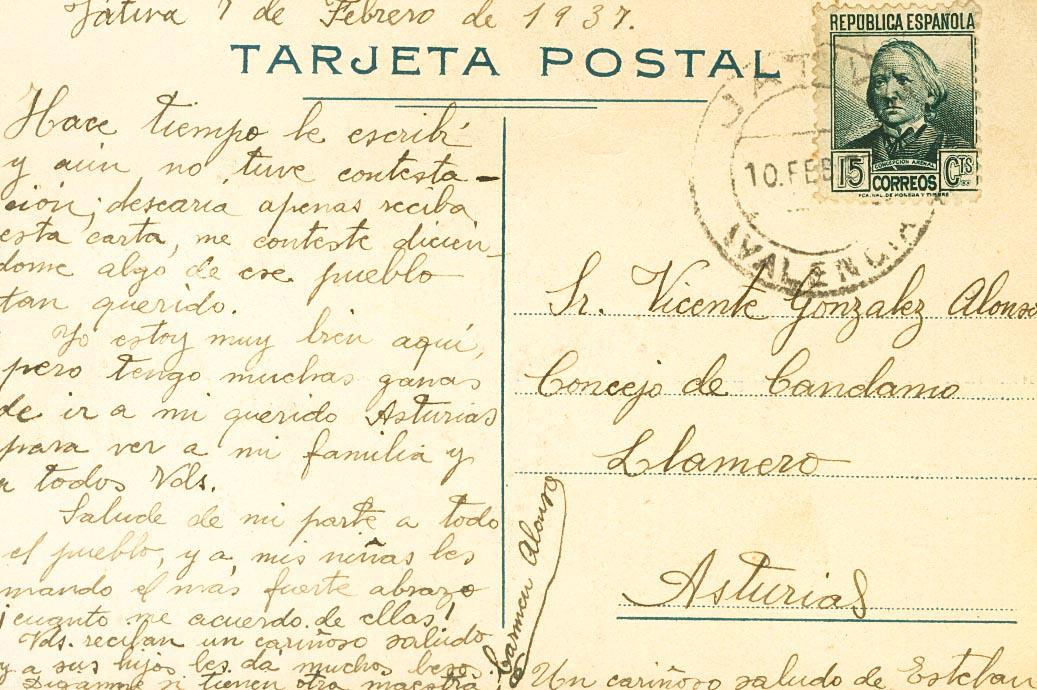 Játiva 7 de Febrero de 1937.
TARJETA POSTAL
Hace tiempo le escribí
y aún no tuve contesta-
ción; desearia apenas reciba
esta carta, me conteste dicien-
dome algo de ese pueblo
tan querido.
Yo estoy muy bien aquí,
pero tengo muchas ganas
de ir a mi querido Asturias
para ver a mi familia y
a todos Vds.
Salude de mi parte a todo
el pueblo, y a mis niñas les
mando el más fuerte abrazo
¡cuanto me acuerdo de ellas!
Vds. reciban un cariñoso saludo
y a sus hijos les da muchos besos
Digamme si tienen otra maestra
Carmen Alonso
REPÚBLICA ESPAÑOLA
CONCEPCION ARENAL
15 CORREOS CTS
FCA. NAL. DE MONEDA Y TIMBRE
JATIV
10.FEB
(VALENCIA
Sr. Vicente Gonzalez Alonso
Concejo de Candamo
Llamero
Asturias
Un cariñoso saludo de Esteban